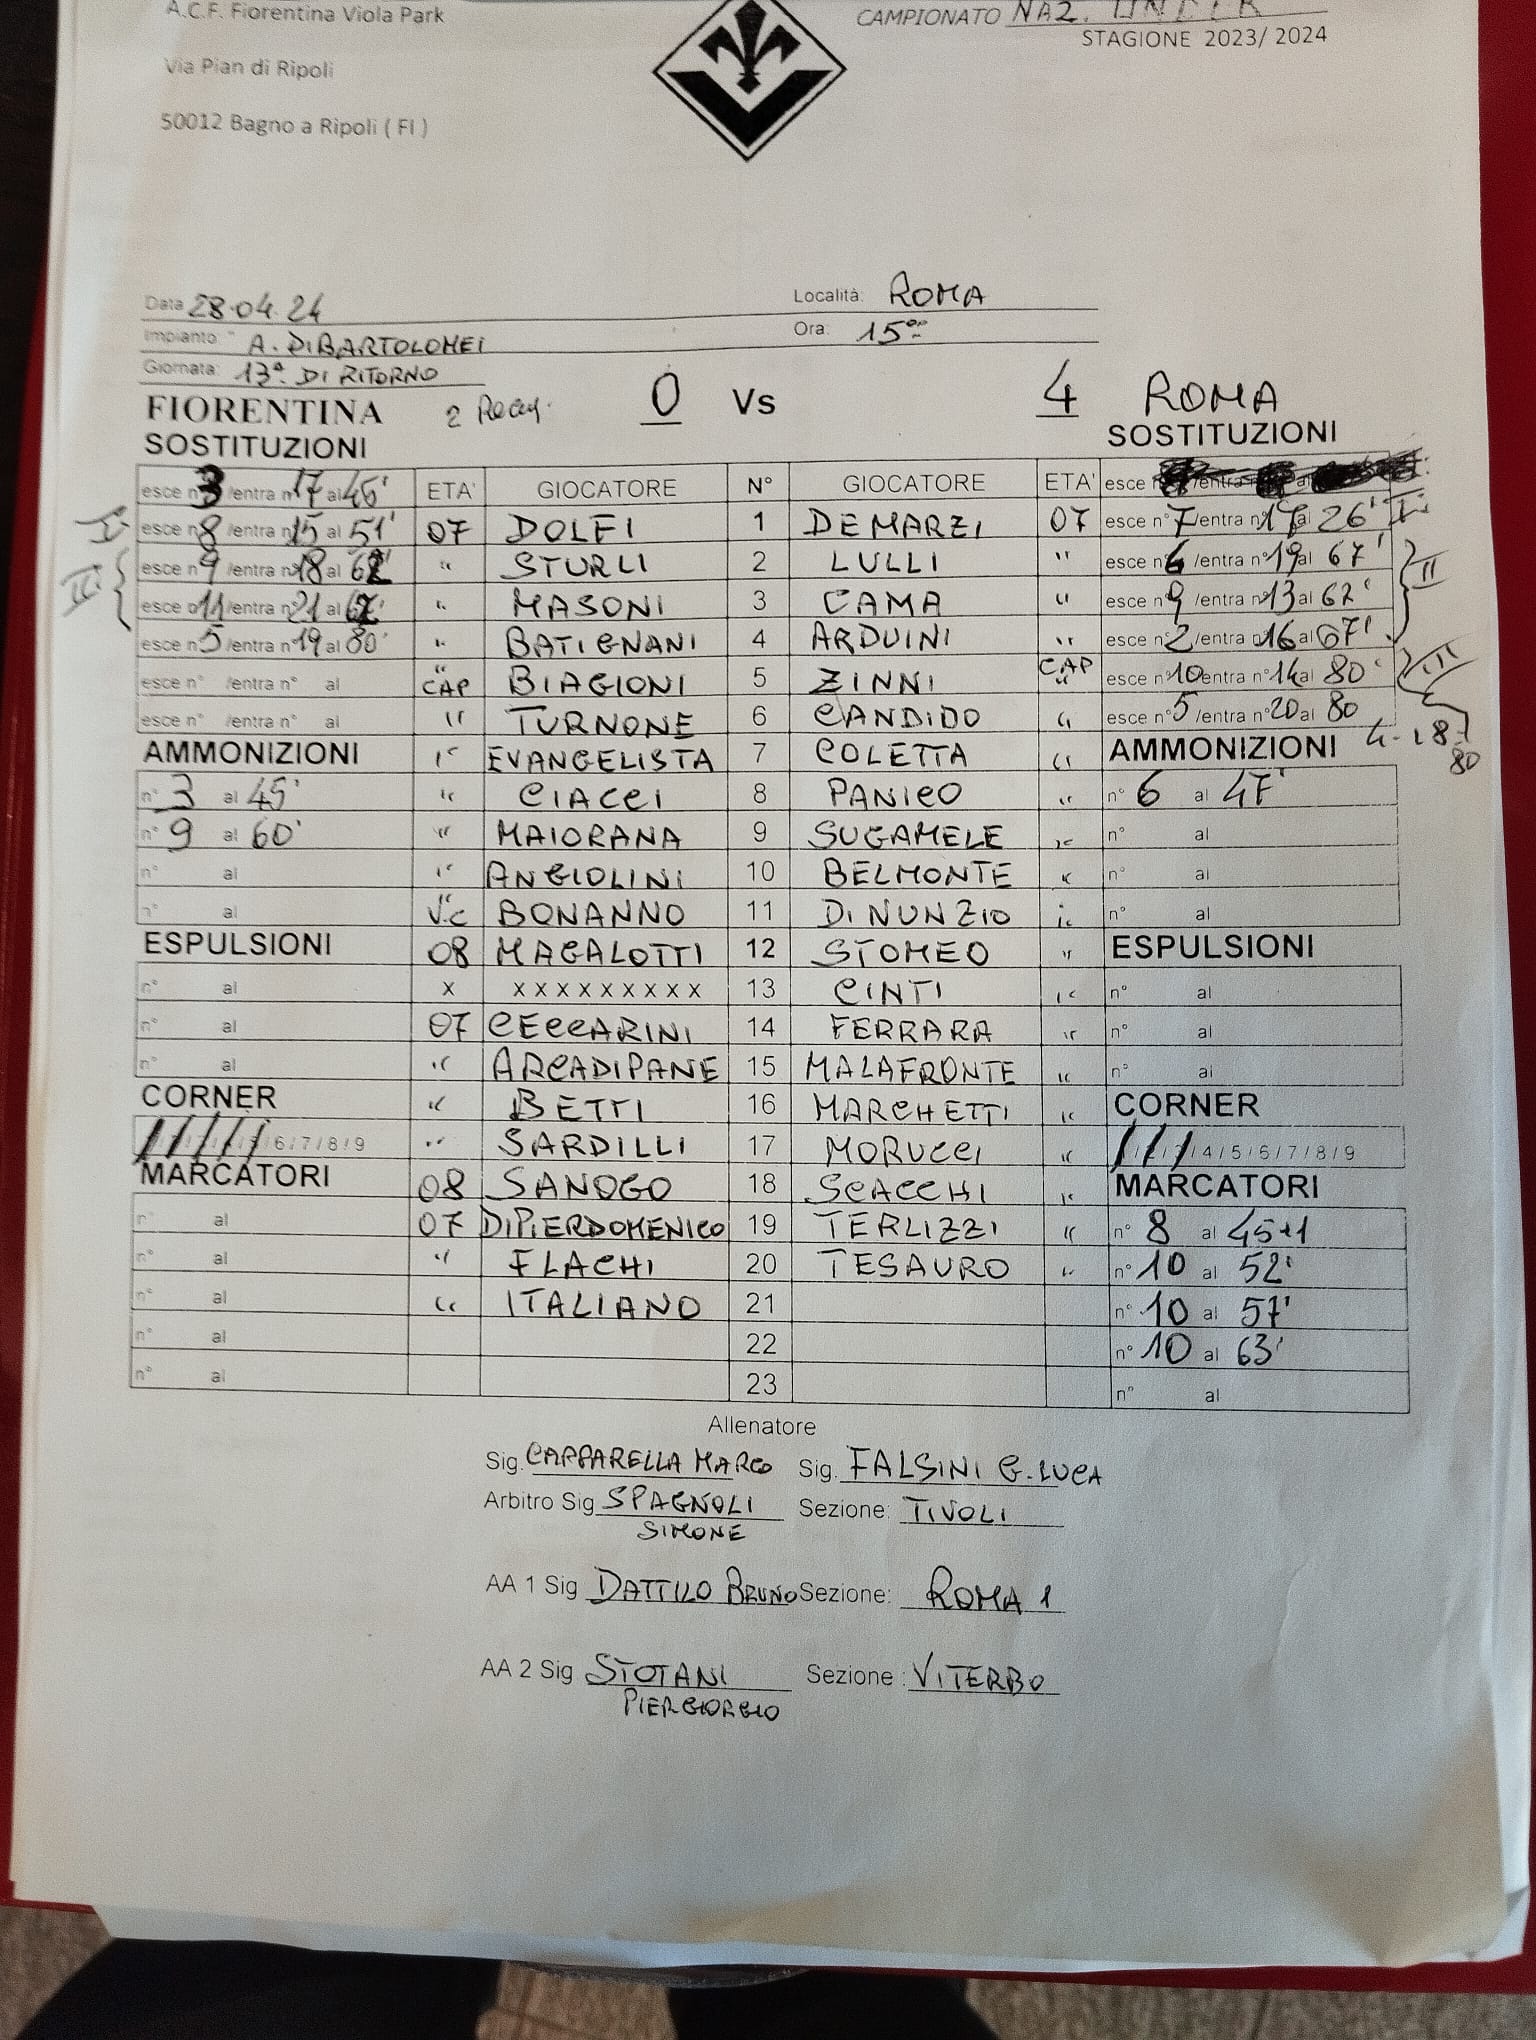 A.C.F. Fiorentina Viola Park
CAMPIONATO NAZ. UNDER
STAGIONE 2023/ 2024
Via Pian di Ripoli
50012 Bagno a Ripoli ( FI )
Data 28.04.24 Località: ROMA
Impianto A. DIBARTOLOMEI Ora: 15°°
Giornata: 13ª DI RITORNO
FIORENTINA 2 Recup. 0 Vs 4 ROMA
SOSTITUZIONI SOSTITUZIONI
esce n° 3 /entra n° 17 al 45' ETA' GIOCATORE N° GIOCATORE ETA' esce n° /entra al
I° esce n° 8 /entra n° 15 al 51' 07 DOLFI 1 DEMARZI 07 esce n° 7 /entra n° 17 al 26' I°
II° esce n° 9 /entra n° 18 al 62' " STURLI 2 LULLI " esce n° 6 /entra n° 19 al 67' II
esce n° 11 /entra n° 21 al 62' " MASONI 3 CAMA " esce n° 9 /entra n° 13 al 62'
esce n° 5 /entra n° 19 al 80' " BATIGNANI 4 ARDUINI " esce n° 2 /entra n° 16 al 67'
esce n° /entra n° al " CAP BIAGIONI 5 ZINNI CAP " esce n° 10 entra n° 14 al 80' III
esce n° /entra n° al " TURNONE 6 CANDIDO " esce n° 5 /entra n° 20 al 80
AMMONIZIONI " EVANGELISTA 7 COLETTA " AMMONIZIONI 4-18-80
n° 3 al 45' " CIACCI 8 PANICO " n° 6 al 47'
n° 9 al 60' " MAIORANA 9 SUGAMELE " n° al
n° al " ANGIOLINI 10 BELMONTE " n° al
n° al " V.C BONANNO 11 DI NUNZIO " n° al
ESPULSIONI 08 MAGALOTTI 12 STOMEO " ESPULSIONI
n° al X XXXXXXXXX 13 CINTI " n° al
n° al 07 CECCARINI 14 FERRARA " n° al
n° al " ARCADIPANE 15 MALAFRONTE " n° al
CORNER " BETTI 16 MARCHETTI " CORNER
/ / / / 5/6/7/8/9 " SARDILLI 17 MORUCCI " / / / 4/5/6/7/8/9
MARCATORI 08 SANOGO 18 SCACCHI " MARCATORI
n° al 07 DIPIERDOMENICO 19 TERLIZZI " n° 8 al 45+1
n° al " FLACHI 20 TESAURO " n° 10 al 52'
n° al " ITALIANO 21 n° 10 al 57'
n° al 22 n° 10 al 63'
n° al 23 n° al
Allenatore
Sig. CAPPARELLA MARCO Sig. FALSINI G.LUCA
Arbitro Sig SPAGNOLI SIMONE Sezione: TIVOLI
AA 1 Sig DATTILO BRUNO Sezione: ROMA 1
AA 2 Sig STOTANI PIERGIORGIO Sezione: VITERBO